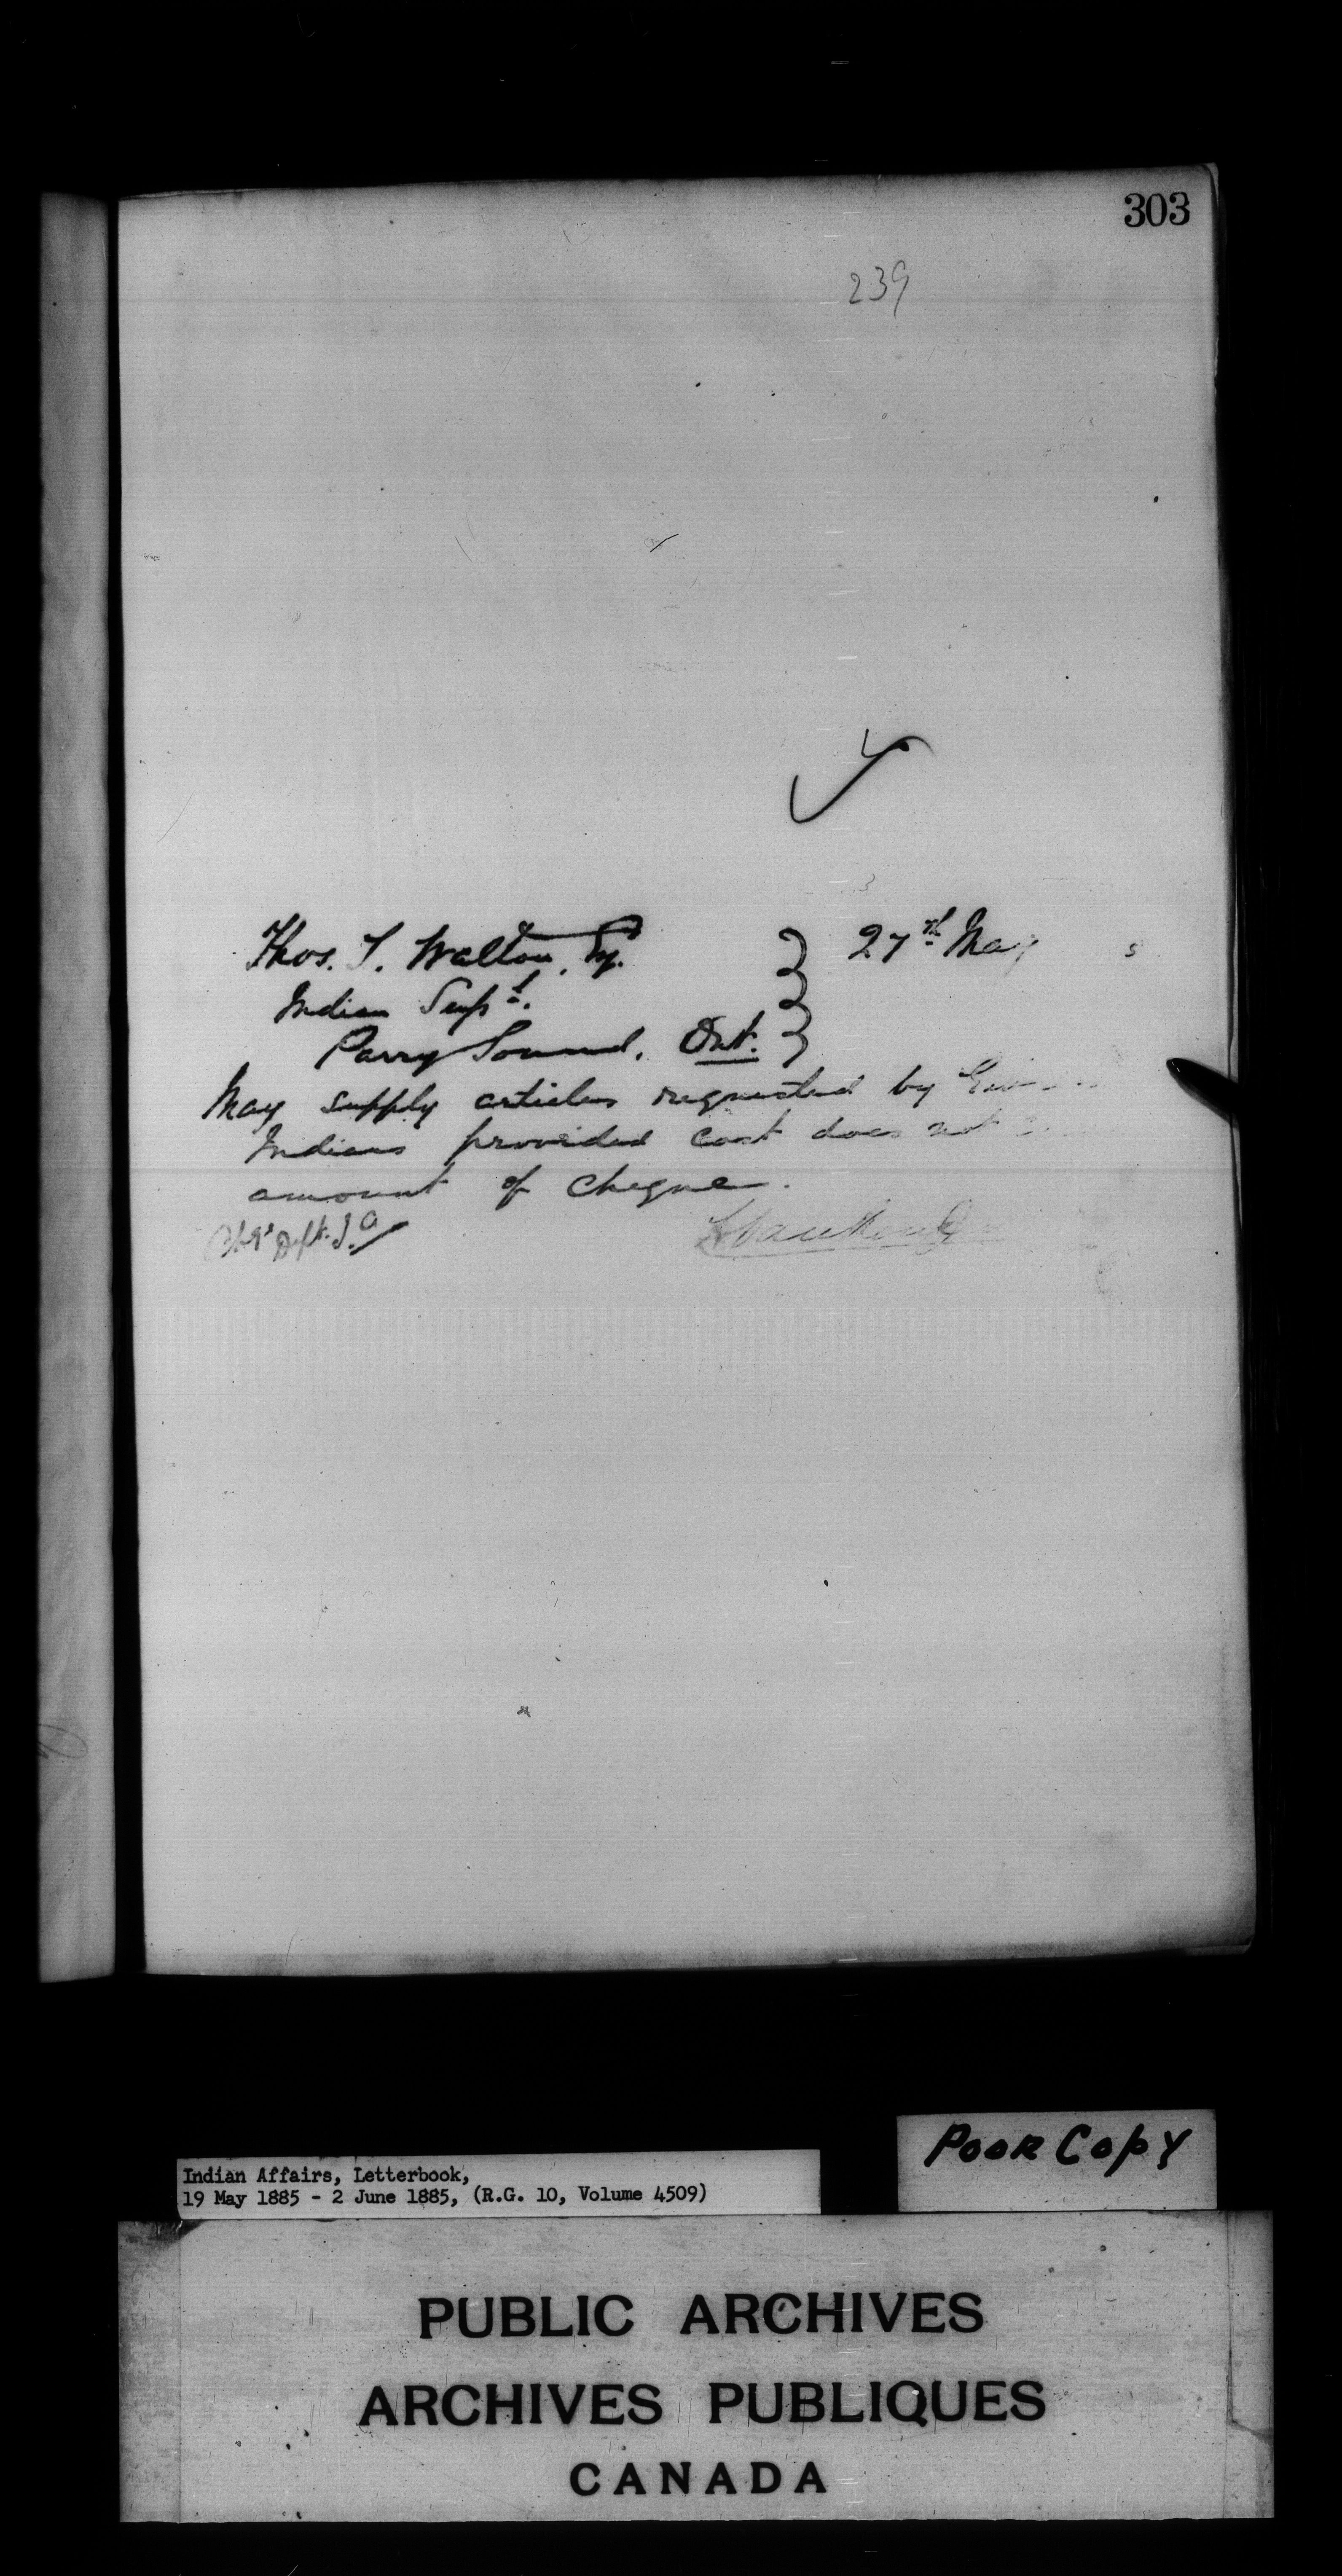 303
239
Thos. S. Walton, Esq.
27th May
Indian Supt.
Parry Sound, Ont.
May supply articles requested by
Indians provided cost does not
amount of cheque.
Chg. Dept. I.A.
L. Vankoughnet
Poor Copy
Indian Affairs, Letterbook,
19 May 1885 - 2 June 1885, (R.G. 10, Volume 4509)
PUBLIC ARCHIVES
ARCHIVES PUBLIQUES
CANADA